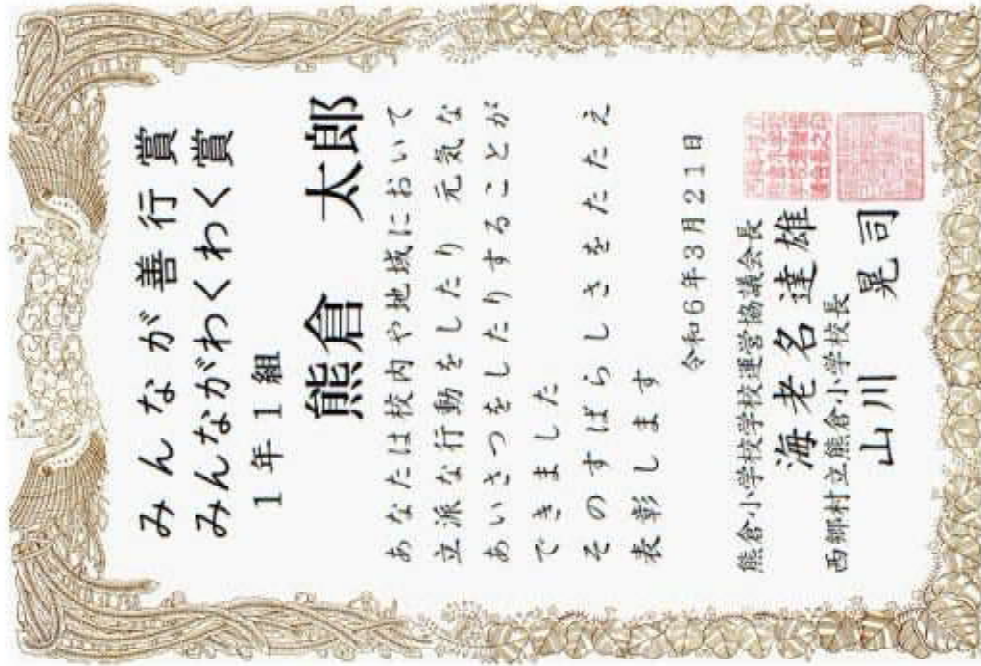 みんなが善行賞
みんながわくわく賞
1年1組
熊倉 太郎
あなたは校内や地域において
立派な行動をしたり 元気な
あいさつをしたりすることが
できました
そのすばらしさをたたえ
表彰します
令和6年3月21日
熊倉小学校学校運営協議会長
海老名達雄
西郷村立熊倉小学校長
山川 晃司